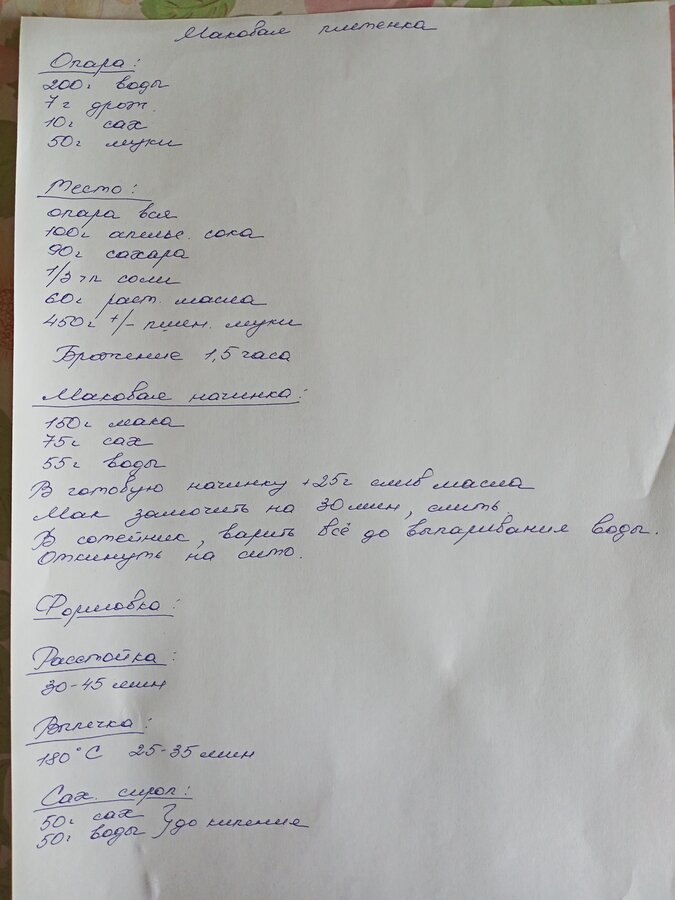 Маковая плетенка
Опара:
200г воды
7г дрож.
10г сах
50г муки
Тесто:
опара вся
100г апельс. сока
90г сахара
1/3 чл соли
60г раст. масла
450г +/- пшен. муки
Брожение 1,5 часа
Маковая начинка:
150г мака
75г сах
55г воды
В готовую начинку +25г слив масла
Мак замочить на 30 мин, слить.
В сотейник, варить всё до выпаривания воды.
Откинуть на сито.
Формовка:
Расстойка:
30-45 мин
Выпечка:
180°C 25-35 мин
Сах. сироп:
50г сах
50г воды } до кипения